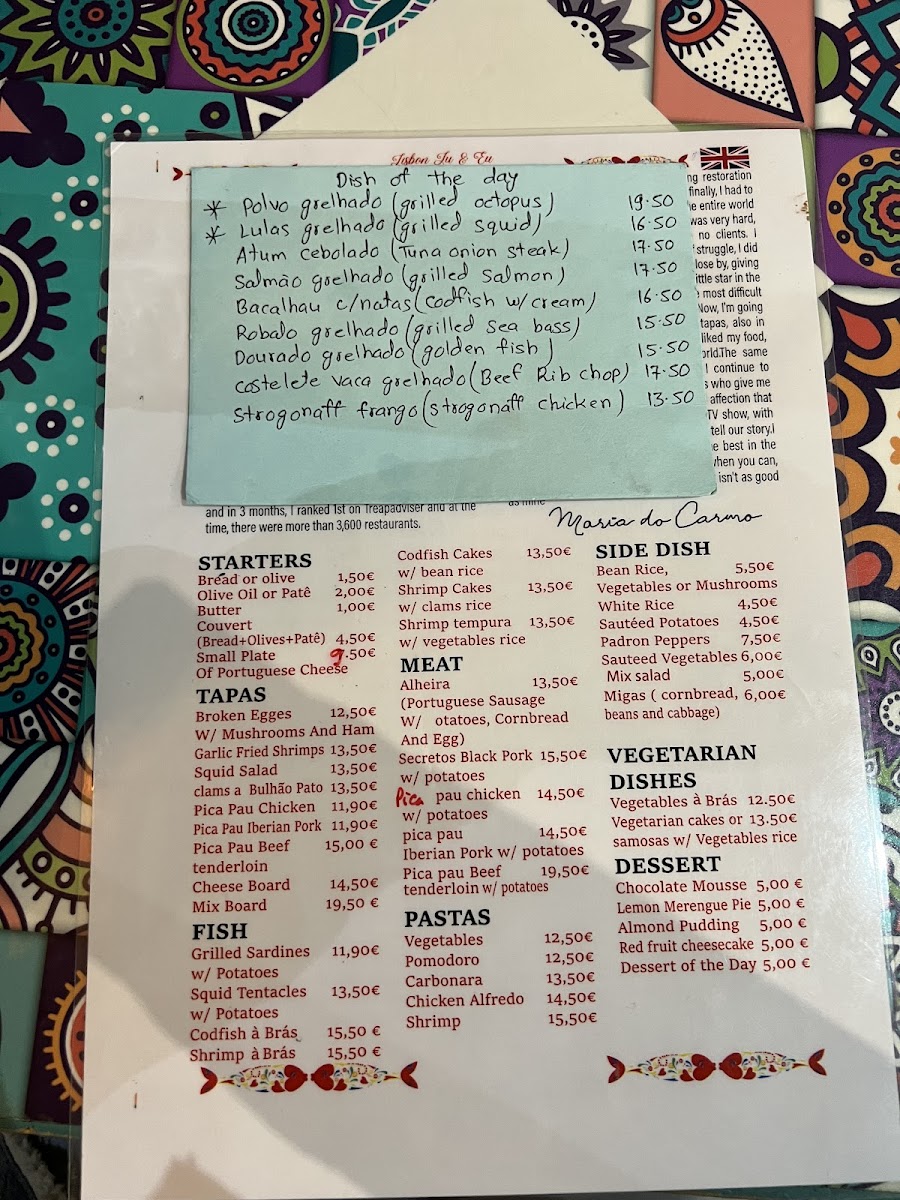 Lisbon Tu & Eu
Dish of the day
* Polvo grelhado (grilled octopus) 19.50
* Lulas grelhado (grilled squid) 16.50
Atum cebolado (Tuna onion steak) 17.50
Salmão grelhado (grilled Salmon) 17.50
Bacalhau c/natas (codfish w/cream) 16.50
Robalo grelhado (grilled sea bass) 15.50
Dourado grelhado (golden fish) 15.50
costelete vaca grelhado (Beef Rib chop) 17.50
Strogonaff frango (strogonaff chicken) 13.50
ng restoration
finally, I had to
e entire world
was very hard,
no clients. I
struggle, I did
lose by, giving
ittle star in the
most difficult
Now, I'm going
tapas, also in
liked my food,
orld.The same
I continue to
s who give me
affection that
TV show, with
tell our story.I
e best in the
when you can,
isn't as good
as mine
and in 3 months, I ranked 1st on Treapadviser and at the
time, there were more than 3,600 restaurants.
Maria do Carmo
STARTERS
Bread or olive 1,50€
Olive Oil or Patê 2,00€
Butter 1,00€
Couvert
(Bread+Olives+Patê) 4,50€
Small Plate 9.50€
Of Portuguese Cheese
TAPAS
Broken Egges 12,50€
W/ Mushrooms And Ham
Garlic Fried Shrimps 13,50€
Squid Salad 13,50€
clams a Bulhão Pato 13,50€
Pica Pau Chicken 11,90€
Pica Pau Iberian Pork 11,90€
Pica Pau Beef 15,00 €
tenderloin
Cheese Board 14,50€
Mix Board 19,50 €
FISH
Grilled Sardines 11,90€
w/ Potatoes
Squid Tentacles 13,50€
w/ Potatoes
Codfish à Brás 15,50 €
Shrimp à Brás 15,50 €
Codfish Cakes 13,50€
w/ bean rice
Shrimp Cakes 13,50€
w/ clams rice
Shrimp tempura 13,50€
w/ vegetables rice
MEAT
Alheira 13,50€
(Portuguese Sausage
W/ otatoes, Cornbread
And Egg)
Secretos Black Pork 15,50€
w/ potatoes
Pica pau chicken 14,50€
w/ potatoes
pica pau 14,50€
Iberian Pork w/ potatoes
Pica pau Beef 19,50€
tenderloin w/ potatoes
PASTAS
Vegetables 12,50€
Pomodoro 12,50€
Carbonara 13,50€
Chicken Alfredo 14,50€
Shrimp 15,50€
SIDE DISH
Bean Rice, 5,50€
Vegetables or Mushrooms
White Rice 4,50€
Sautéed Potatoes 4,50€
Padron Peppers 7,50€
Sauteed Vegetables 6,00€
Mix salad 5,00€
Migas ( cornbread, 6,00€
beans and cabbage)
VEGETARIAN
DISHES
Vegetables à Brás 12.50€
Vegetarian cakes or 13.50€
samosas w/ Vegetables rice
DESSERT
Chocolate Mousse 5,00 €
Lemon Merengue Pie 5,00 €
Almond Pudding 5,00 €
Red fruit cheesecake 5,00 €
Dessert of the Day 5,00 €